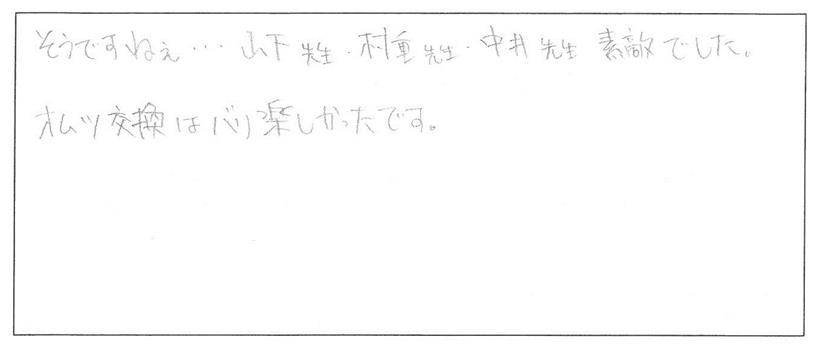 そうですねぇ… 山下先生・村重先生・中井先生 素敵でした。
オムツ交換はバリ楽しかったです。